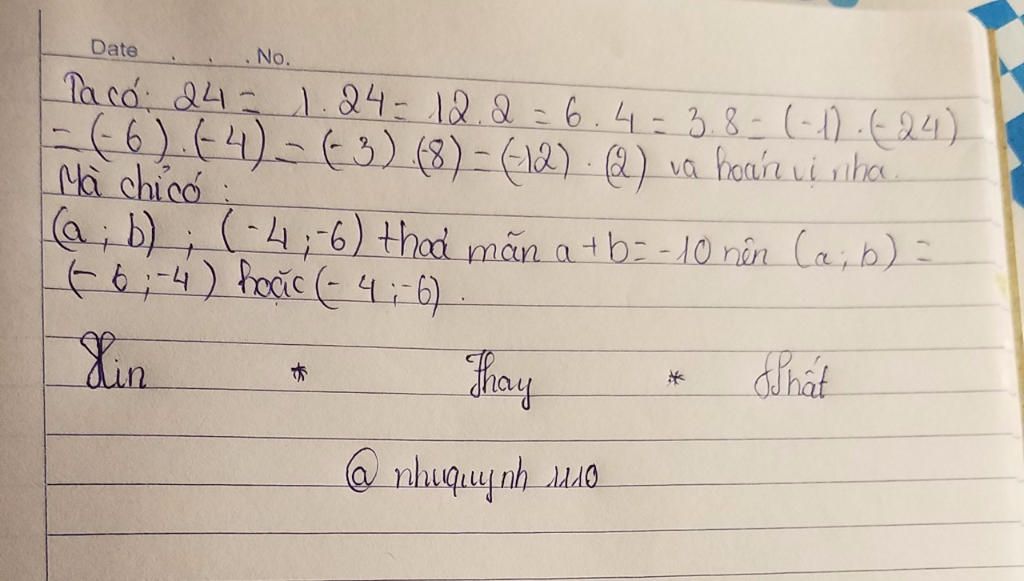 Date . . . No.
Ta có: 24 = 1.24 = 12.2 = 6.4 = 3.8 = (-1).(-24)
= (-6).(-4) = (-3).(8) = (-12).(2) và hoán vị nha.
Mà chỉ có:
(a; b); (-4;-6) thoả mãn a+b=-10 nên (a;b) =
(-6;-4) hoặc (-4;-6).
Xin * Thay * Nhất
@ nhuquynh 1110